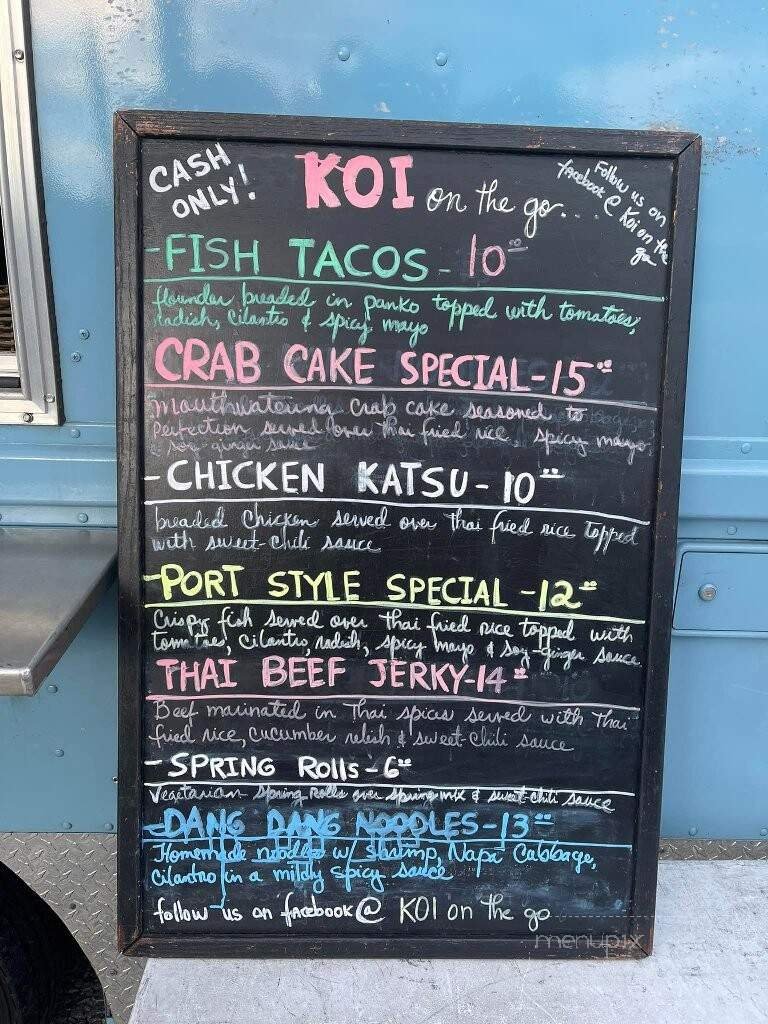 CASH ONLY!
KOI on the go....
Follow us on facebook @ Koi on the go
-FISH TACOS - 10⁰⁰
flounder breaded in panko topped with tomatoes,
radish, cilantro & spicy mayo
CRAB CAKE SPECIAL-15⁰⁰
Mouthwatering crab cake seasoned to
perfection served over thai fried rice, spicy mayo
& soy-ginger sauce
-CHICKEN KATSU-10⁰⁰
breaded chicken served over thai fried rice topped
with sweet-chili sauce
-PORT STYLE SPECIAL-12⁰⁰
Crispy fish served over thai fried rice topped with
tomatoes, cilantro, radish, spicy mayo & soy-ginger sauce
THAI BEEF JERKY-14⁰⁰
Beef marinated in Thai spices served with Thai
fried rice, cucumber relish & sweet-chili sauce
-SPRING Rolls-6⁰⁰
Vegetarian spring rolls over spring mix & sweet-chili sauce
-DANG DANG NOODLES-13⁰⁰
Homemade noodles w/ shrimp, Napa Cabbage,
cilantro in a mildly spicy sauce
follow us on facebook @ KOI on the go
menupix